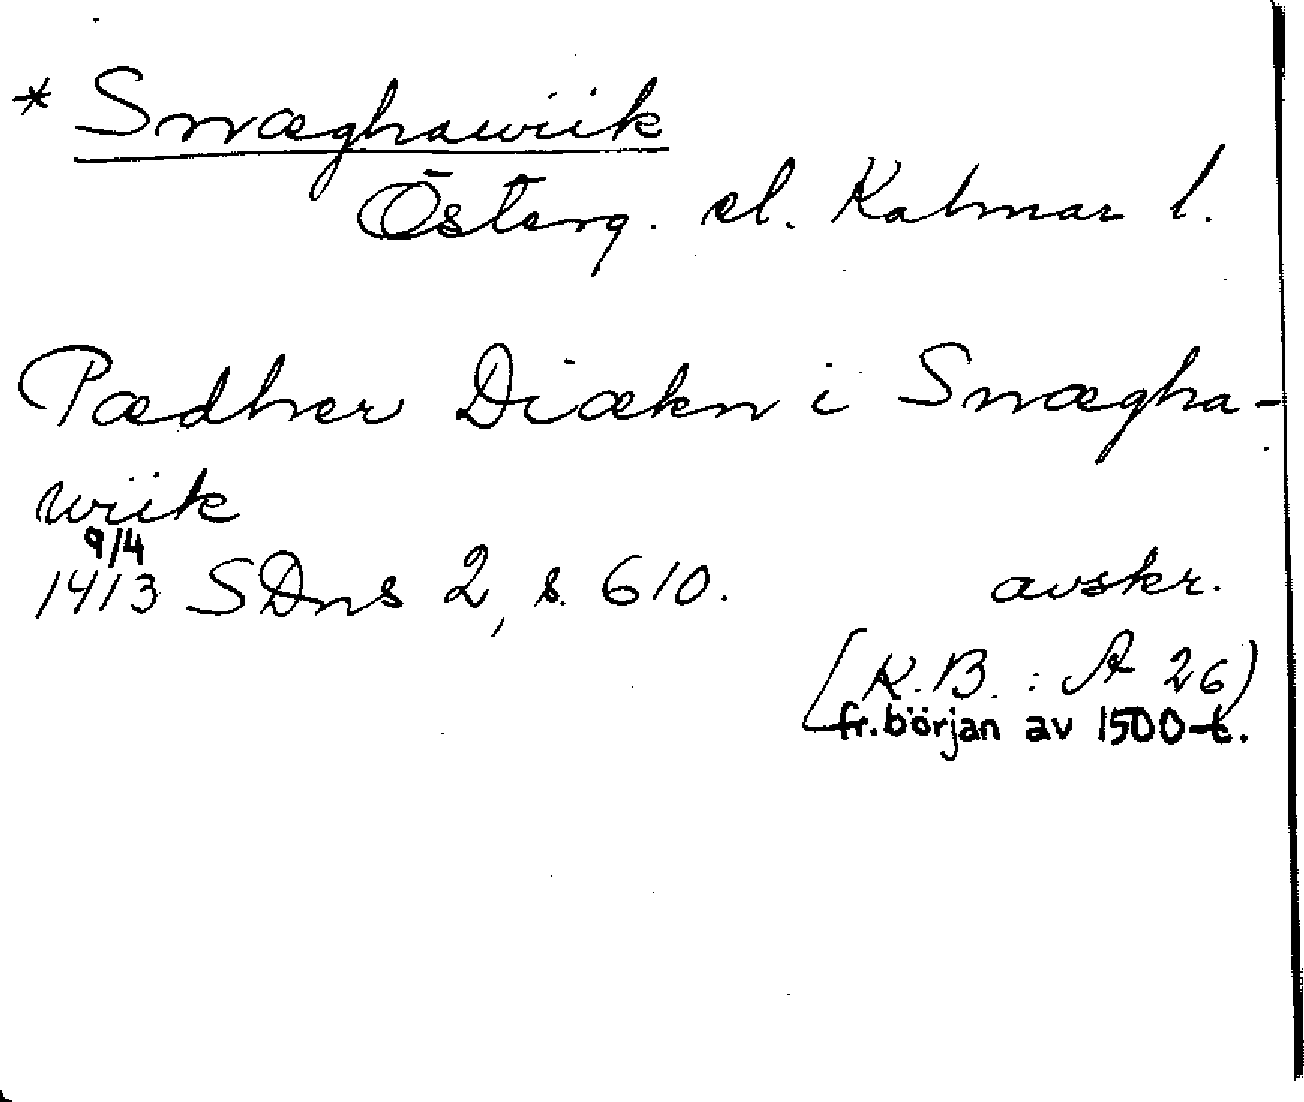 * Snæghawiik
Österg. el. Kalmar l.
Pædher Diækn i Snægha-
wiik
9/4
1413 SDns 2, s. 610. avskr.
(K.B.: A 26)
fr. början av 1500-t.